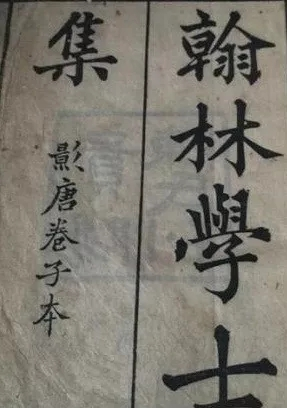 翰林學士
集
影唐卷子本